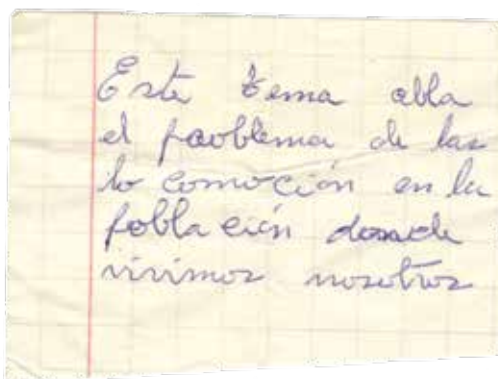 Este tema abla
el problema de las
lo comoción en la
población donde
vivimos nosotros